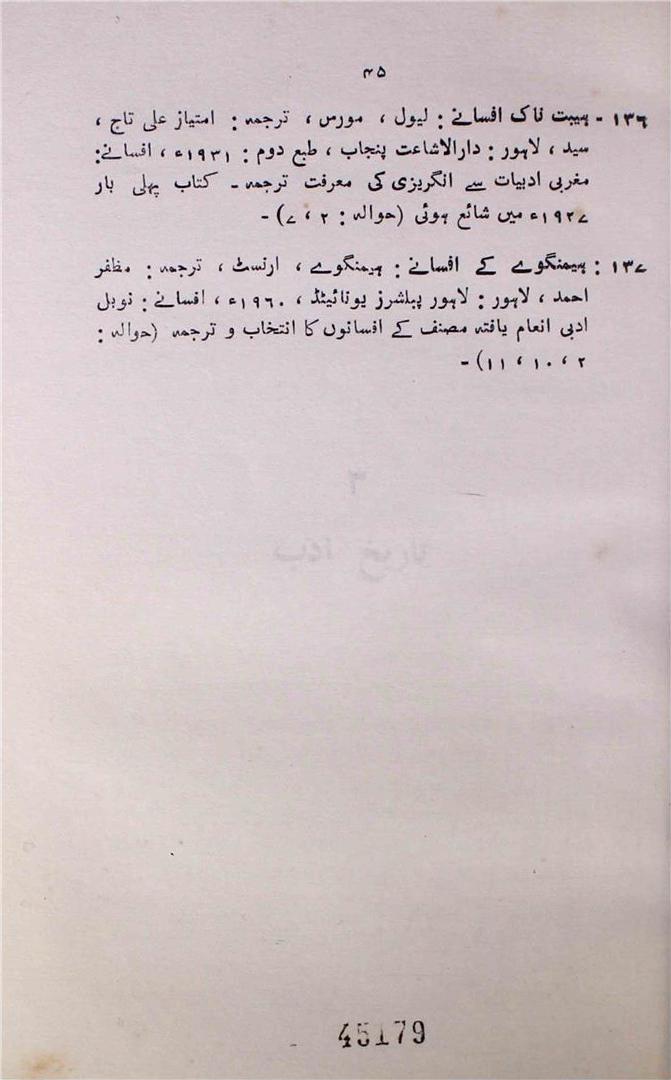 ۴۵
۱۳۶ - ہیبت ناک افسانے : لیول ، مورس ، ترجمہ : امتیاز علی تاج ،
سید ، لاہور : دارالاشاعت پنجاب ، طبع دوم : ۱۹۳۱ء ، افسانے :
مغربی ادبیات سے انگریزی کی معرفت ترجمہ ۔ کتاب پہلی بار
۱۹۲۷ء میں شائع ہوئی (حوالہ : ۲ ، ۷) ۔
۱۳۷ : ہیمنگوے کے افسانے : ہیمنگوے ، ارنسٹ ، ترجمہ : مظفر
احمد ، لاہور : لاہور پبلشرز یونائیٹڈ ، ۱۹۶۰ء ، افسانے : نوبل
ادبی انعام یافتہ مصنف کے افسانوں کا انتخاب و ترجمہ (حوالہ :
۲ ، ۱۰ ، ۱۱) ۔
45179